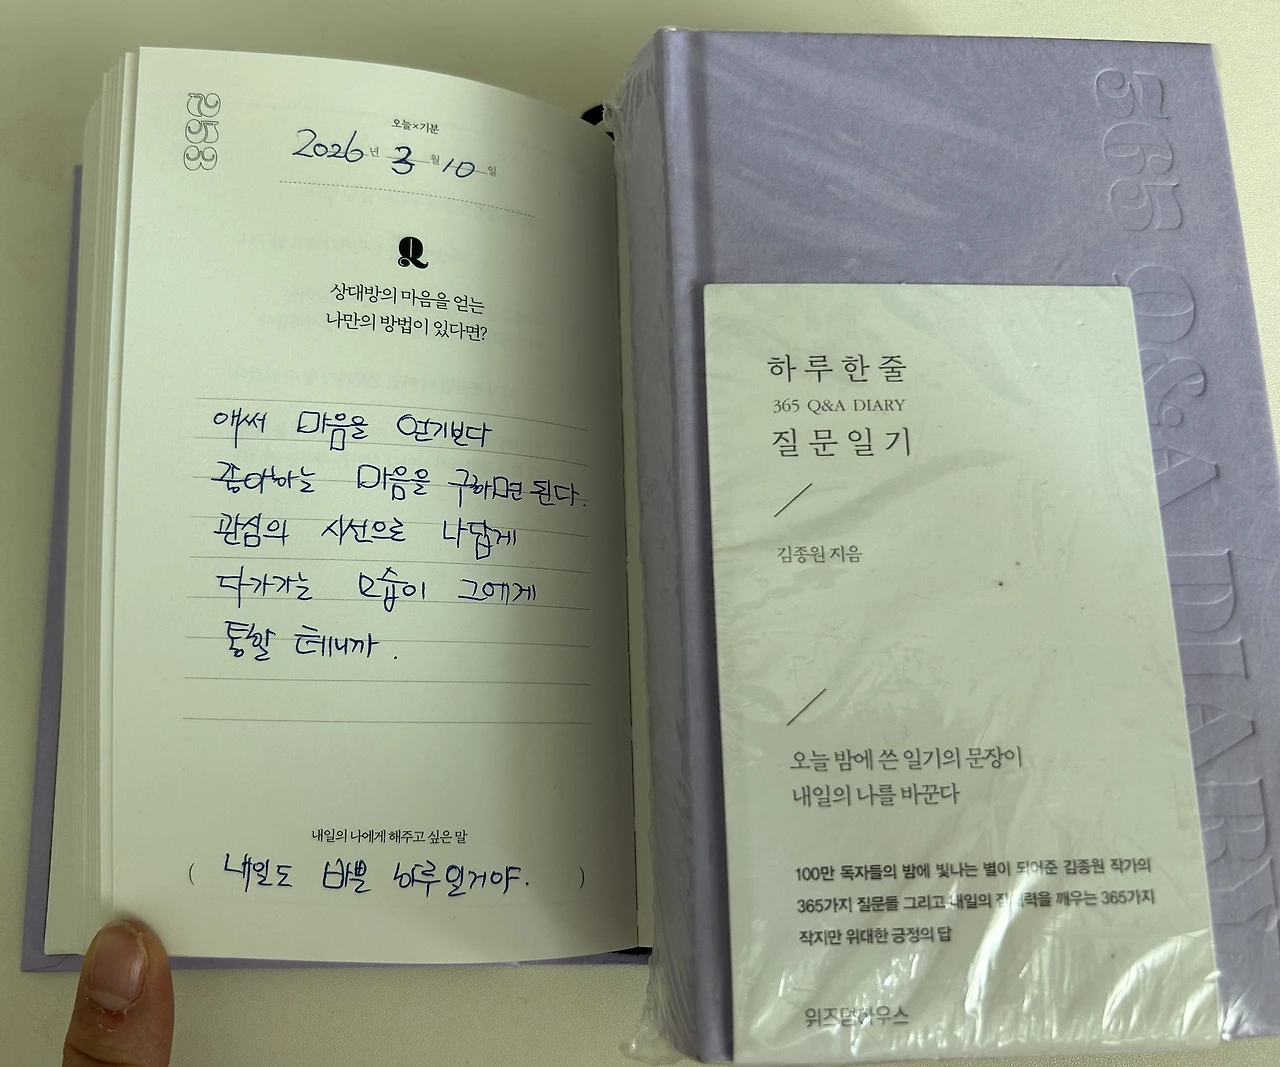 253
오늘×기분
2026년 3월 10일
Q
상대방의 마음을 얻는
나만의 방법이 있다면?
애써 마음을 얻기보다
좋아하는 마음을 구하면 된다.
관심의 시선으로 나답게
다가가는 모습이 그에게
통할 테니까.
내일의 나에게 해주고 싶은 말
( 내일도 바쁠 하루일거야. )
365 Q&A DIARY
하루한줄
365 Q&A DIARY
질문일기
김종원 지음
오늘 밤에 쓴 일기의 문장이
내일의 나를 바꾼다
100만 독자들의 밤에 빛나는 별이 되어준 김종원 작가의
365가지 질문들 그리고 내일의 잠재력을 깨우는 365가지
작지만 위대한 긍정의 답
위즈덤하우스